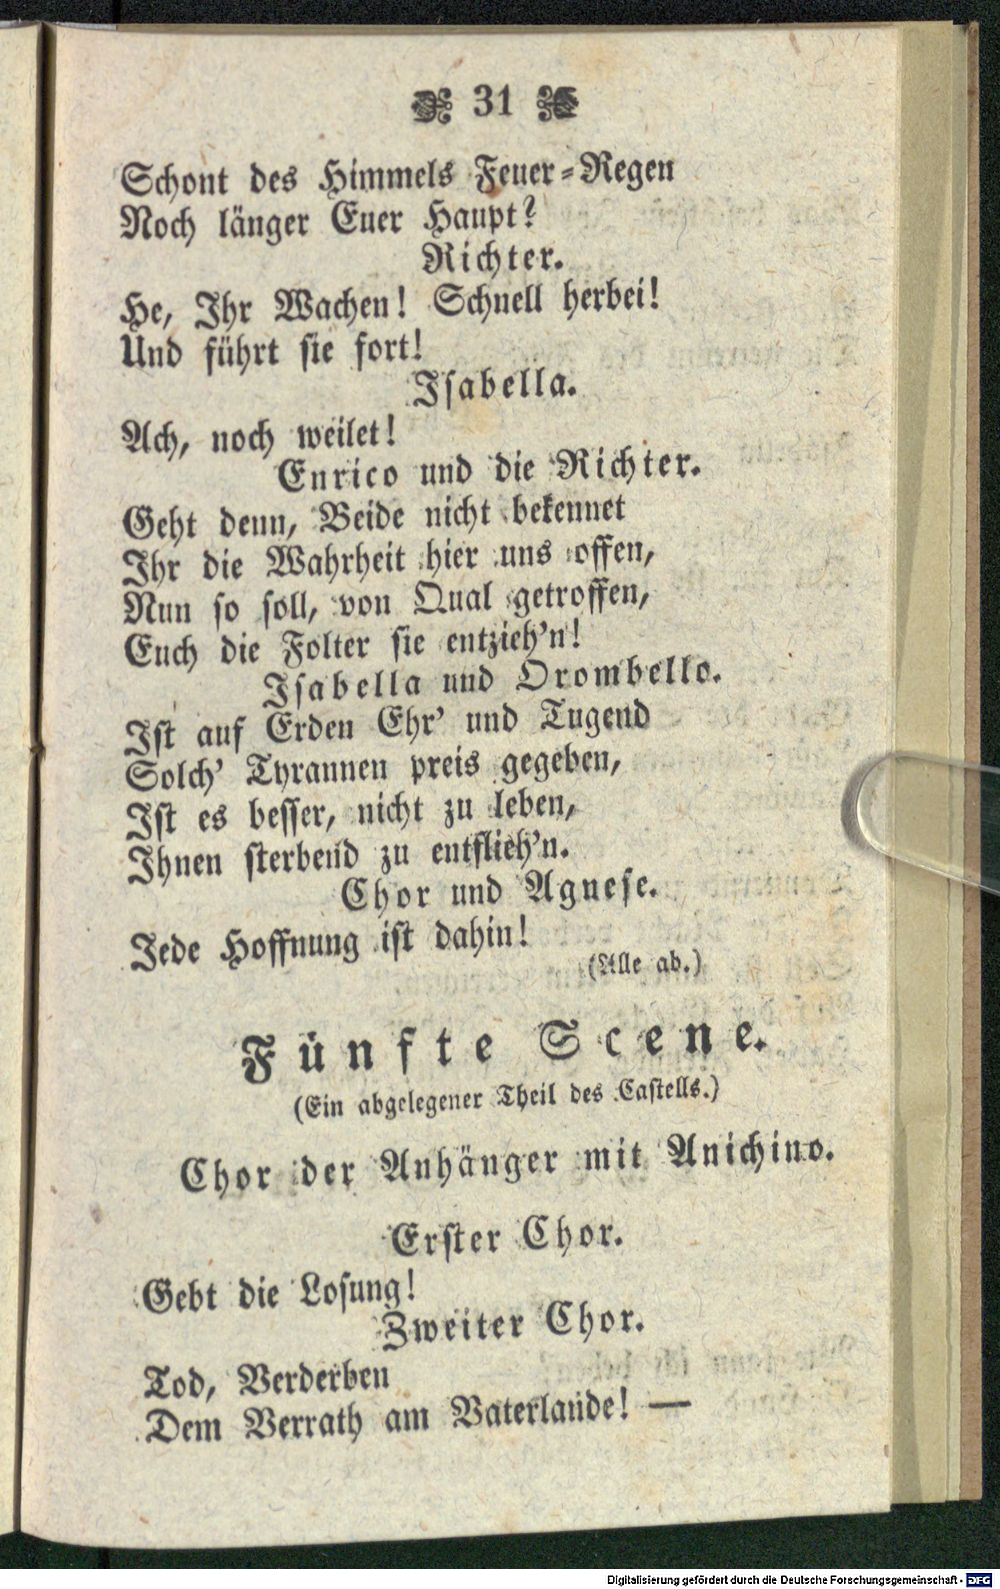 31
Schont des Himmels Feuer-Regen
Noch länger Euer Haupt?
Richter.
He, Ihr Wachen! Schnell herbei!
Und führt sie fort!
Isabella.
Ach, noch weilet!
Enrico und die Richter.
Geht denn, Beide nicht bekennet
Ihr die Wahrheit hier uns offen,
Nun so soll, von Qual getroffen,
Euch die Folter sie entzieh'n!
Isabella und Orombello.
Ist auf Erden Ehr' und Tugend
Solch' Tyrannen preis gegeben,
Ist es besser, nicht zu leben,
Ihnen sterbend zu entflieh'n.
Chor und Agnese.
Jede Hoffnung ist dahin!
(Alle ab.)
Fünfte Scene.
(Ein abgelegener Theil des Castells.)
Chor der Anhänger mit Anichino.
Erster Chor.
Gebt die Losung!
Zweiter Chor.
Tod, Verderben
Dem Verrath am Vaterlande! —
Digitalisierung gefördert durch die Deutsche Forschungsgemeinschaft - DFG